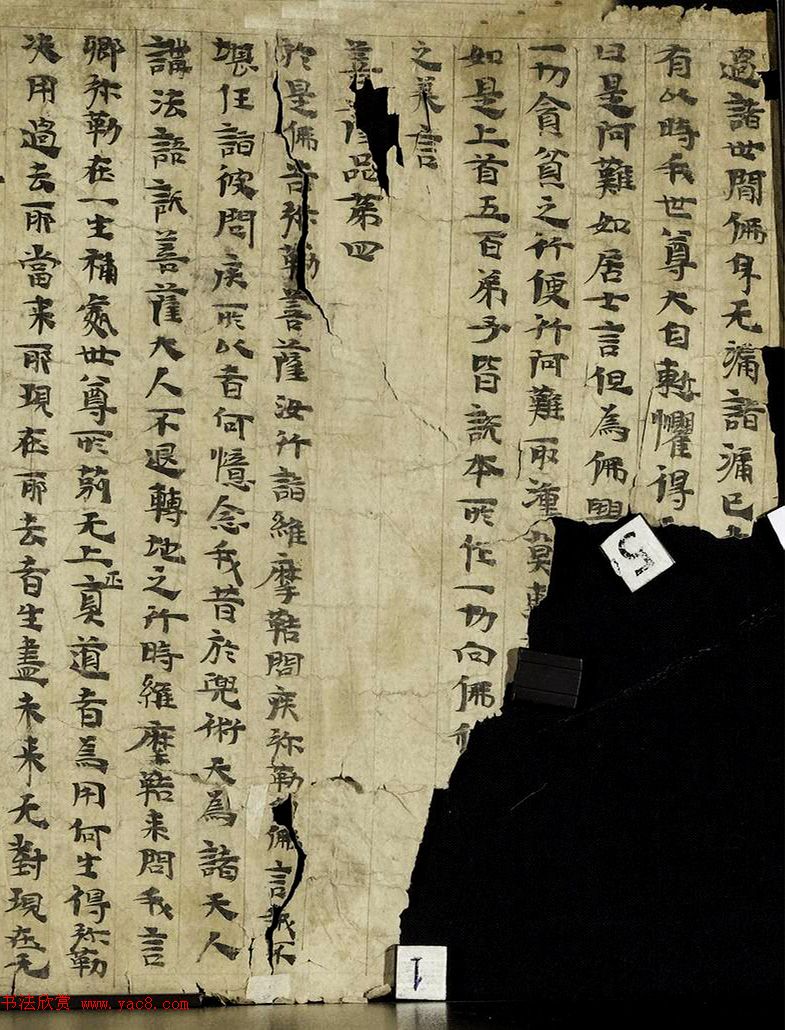 過諸世間佛身无漏諸漏已
有以時我世尊大自慙懼得
曰是阿難如居士言但為佛興
一切貪貧之行便行阿難取湩莫慙
如是上首五百弟子皆說本所作一切向佛
之美言
菩薩品第四
於是佛告弥勒菩薩汝行詣維摩鞊問疾弥勒白佛言我不
堪任詣彼問疾所以者何憶念我昔於兜術天為諸天人
講法語說菩薩大人不退轉地之行時維摩鞊来問我言
卿弥勒在一生補處世尊所莂无上正真道者為用何生得弥勒
决用過去耶當来耶現在耶去者生盡未来无對現在无
5
1
书法欣赏 www.yac8.com